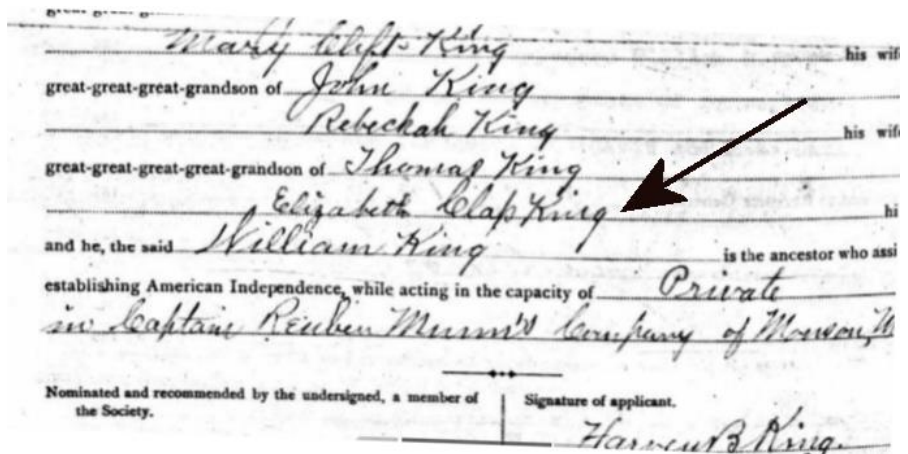 Mary Clift King his wife
great-great-great-grandson of John King
Rebeckah King his wife
great-great-great-great-grandson of Thomas King
Elizabeth Clap King hi
and he, the said William King is the ancestor who assi
establishing American Independence, while acting in the capacity of Private
in Captain Reuben Munn's Company of Monson,
Nominated and recommended by the undersigned, a member of
the Society.
Signature of applicant.
Harvey B King.